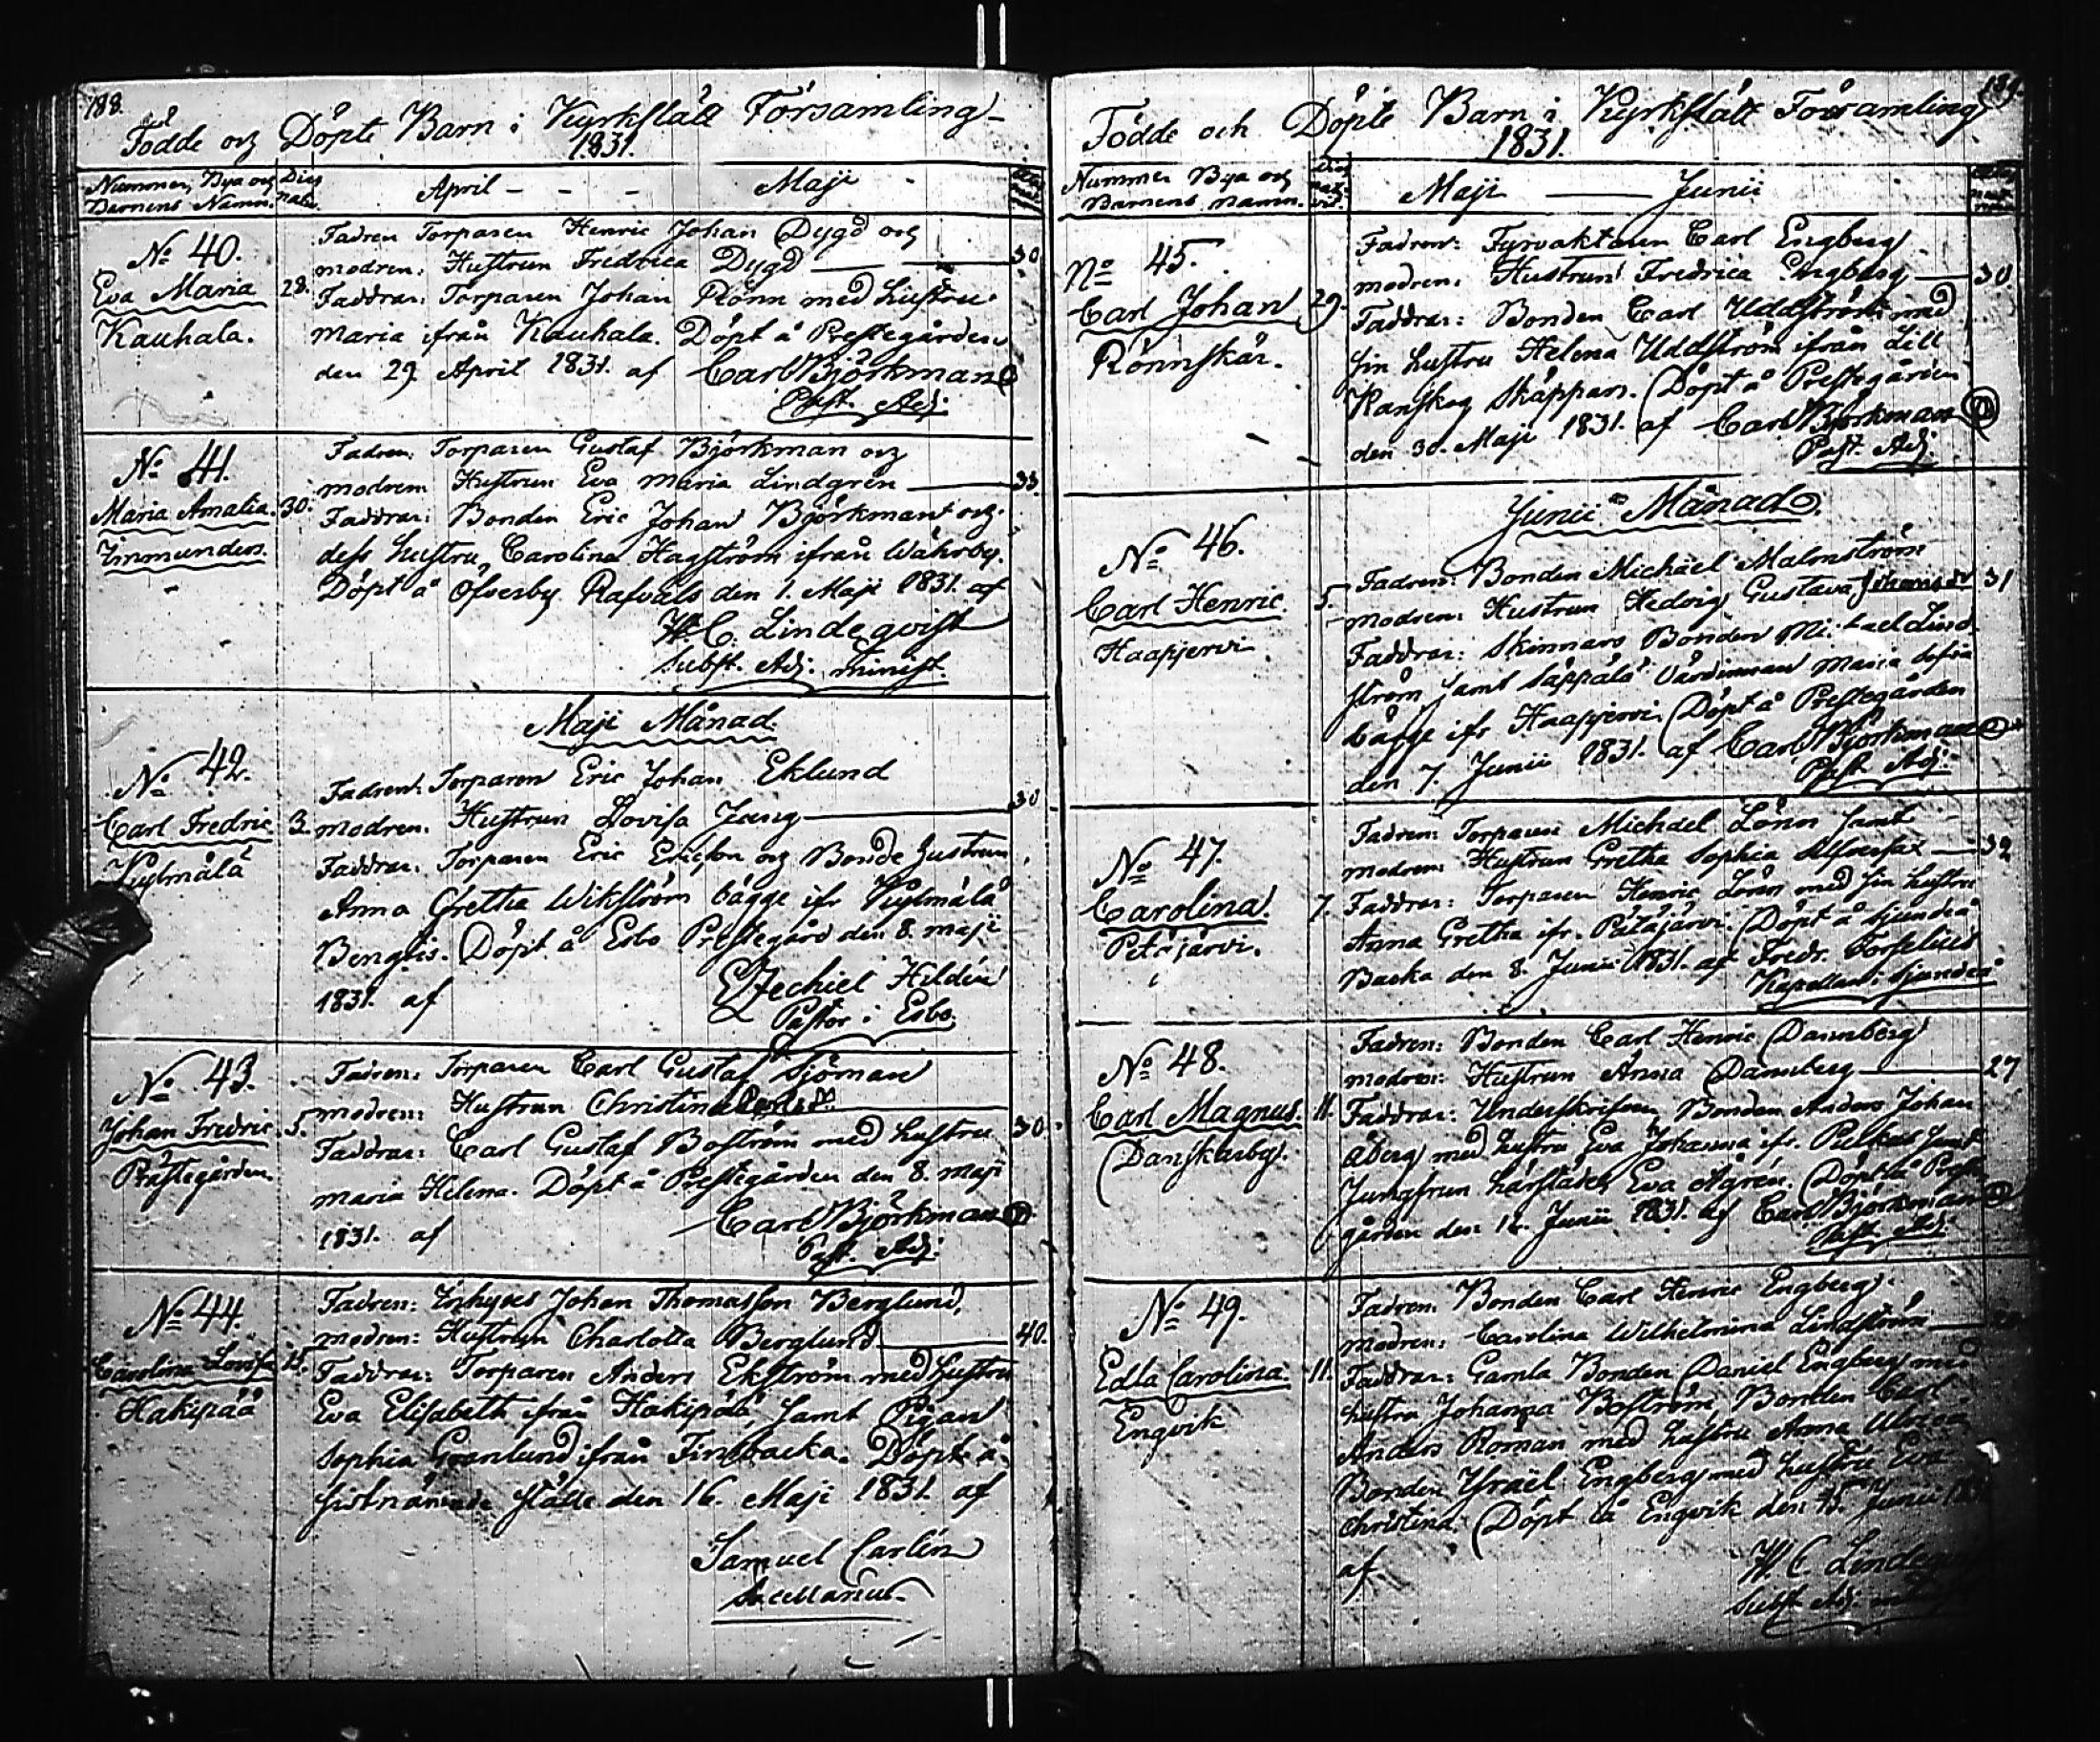 188.
Födde och Döpte Barn i Kyrkslätt Församling
1831.
Nummer, Bya och Dies
Barnens Namn. natal.
April - - - Maji -
No 40.
Eva Maria 28.
Kauhala.
Fadren Torparen Henric Johan Dygd och
modren: Hustrun Fredrica Dygd 30
Faddrar: Torparen Johan Rönn med hustru
Maria ifrån Kauhala. Döpt å Prestegården
den 29. April 1831. af Carl Björkman
Past. Adj.
No 41.
Maria Amalia. 30.
Finnunders.
Fadren: Torparen Gustaf Björkman och
modren Hustrun Eva Maria Lindgrén 33.
Faddrar: Bonden Eric Johan Björkman och
dess hustru, Carolina Hagström ifrån Wåhrby.
Döpt å Öfverby Rafvals den 1. Maji 1831. af
W. C. Lindeqvist
Subst. Adj. minist.
Maji Månad.
No 42.
Carl Fredric 3.
Kylmälä
Fadren: Torparen Eric Johan Eklund
modren. Hustrun Lovisa Jung 30
Faddrar. Torparen Eric Ericson och Bonde hustrun
Anna Gretha Wikström bägge ifr Kylmälä
Bengtis. Döpt å Esbo Prestegård den 8. maji
1831. af Ezechiel Hildén
Pastor i Esbo.
No 43.
Johan Fredric 5.
Prästegården
Fadren: Torparen Carl Gustaf Sjöman
modren: Hustrun Christina
Faddrar: Carl Gustaf Boström med hustru 30.
Maria Helena. Döpt å Prestegården den 8. maji
1831. af Carl Björkman
Past. Adj.
No 44.
Carolina Lovisa 15.
Hakipää
Fadren: Inhyses Johan Thomasson Berglund,
modren: Hustrun Charlotta Berglund 40.
Faddrar: Torparen Anders Ekström med hustru
Eva Elisabeth ifrån Hakipää, samt Pigan
Sophia Granlund ifrån Finsbacka. Döpt å
sistnämnde ställe den 16. Maji 1831. af
Samuel Carlén
Sacellanus.
189.
Födde och Döpte Barn i Kyrkslätt Församling
1831.
Nummer Bya och
Barnens namn.
Maji Junii
No 45.
Carl Johan 29.
Rönnskär.
Fadren: Fyrvaktaren Carl Engberg
modren: Hustrun Fredrica Engberg 30
Faddrar: Bonden Carl Uddström med
sin hustru Helena Uddström ifrån Lill
Kanskog Skäppars. Döpt å Prestegården
den 30. Maji 1831. af Carl Björkman
Past. Adj.
Junii Månad.
No 46.
Carl Henric. 5.
Haapjervi
Fadren: Bonden Michäel Malmström
modren: Hustrun Hedvig Gustava 31
Faddrar: Skinnars Bonden Michael Lind
ström samt Säppälä Värdinnan Maria Sofia
bägge ifr Haapjervi. Döpt å Prestegården
den 7. Junii 1831. af Carl Björkman
Past. Adj.
No 47.
Carolina. 7.
Petäjärvi.
Fadren: Torparen Michael Lönn samt
modren: Hustrun Gretha Sophia 32
Faddrar: Torparen Henric Lönn med sin hustru
Anna Gretha ifr. Pätäjärvi. Döpt å Sjundeå
Backa den 8. Junii 1831. af Fredr. Forselius
Kapellan i Sjundeå
No 48.
Carl Magnus. 11.
Danskarby.
Fadren: Bonden Carl Henric Dannberg
modren: Hustrun Anna Dannberg 27
Faddrar: Underskrifven, Bonden Anders Johan
Åberg med hustru Eva Johanna ifr. samt
Jungfrun härstädes Eva Ågrén. Döpt å Preste
gården den Junii 1831. af Carl Björkman
Past. Adj.
No 49.
Edla Carolina. 11.
Engvik
Fadren: Bonden Carl Henric Engberg.
modren: Carolina Wilhelmina Lindström
Faddrar: Gamla Bonden Daniel Engberg med
hustru Johanna Boström, Bonden Carl
Anders Roman med hustru Anna Ulrica
Bonden Ysraël Engberg med hustru Eva
Christina. Döpt å Engvik den 15. Junii
af W. C.
Subst. Adj.